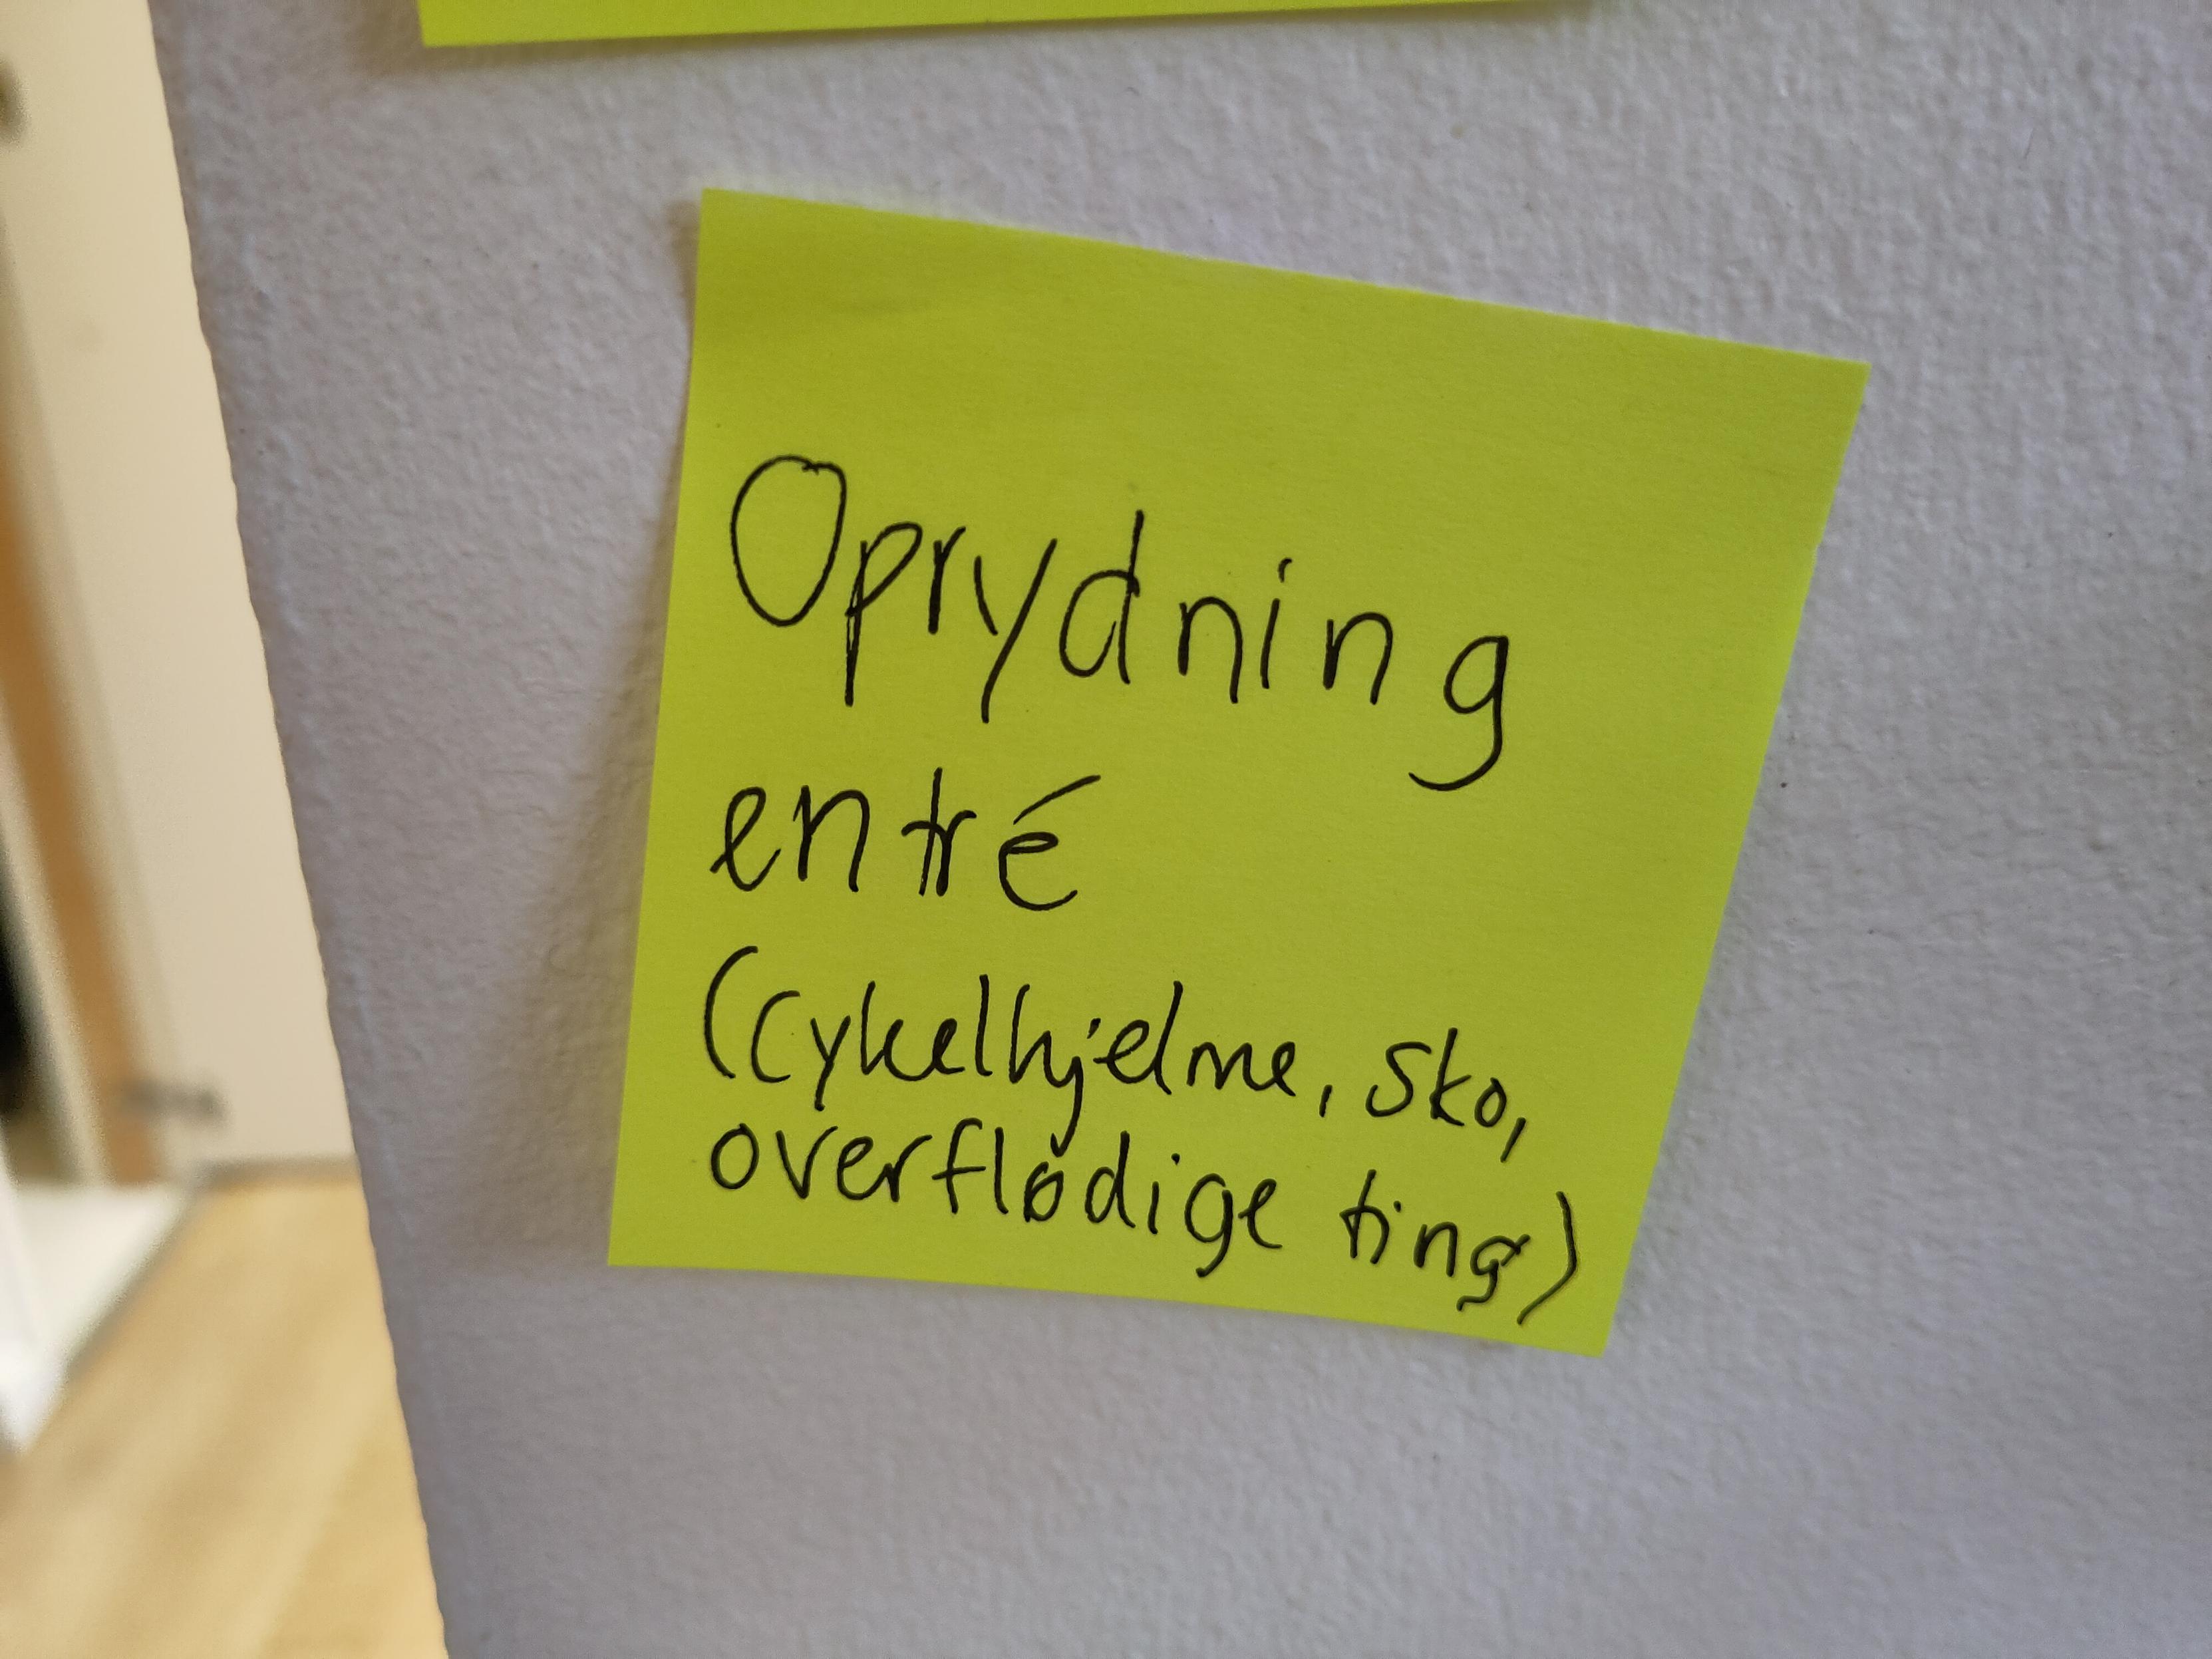 Oprydning
entré
(cykelhjelme, sko,
overflødige ting)